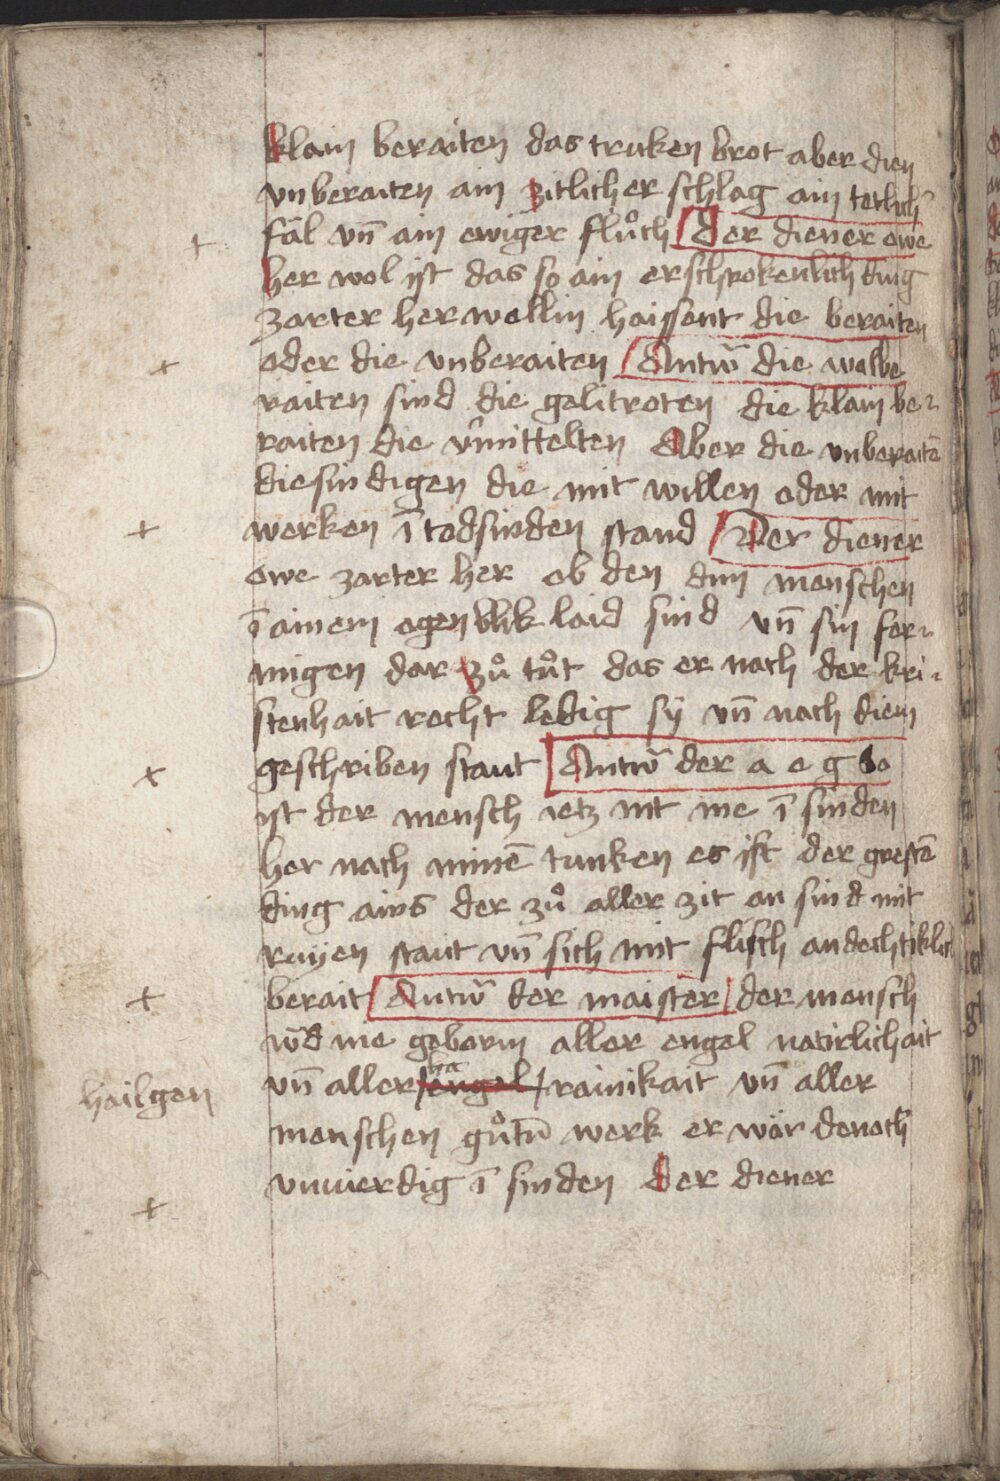 klain beraiten das truken brot aber dien
vnberaiten ain zitlicher schlag ain tetlich
fäl vn̄ ain ewiger flůch Der diener owe
her wol ist das so ain erschrokenlich ding
zarter her wellin haissent die beraiten
oder die vnberaiten Antw̄ die walbe
raiten sind die gelitroten die klain be-
raiten die v̄mittelten Aber die vnberaitē
die sindigen die mit willen oder mit
werken ī todsinden stand Der diener
owe zarter her ob den dim menschen
ī ainem ogenblik laid sind vn̄ sin fer-
migen dar zů tůt das er nach der kri-
stenhait recht ledig sy vn̄ nach diem
geschriben staut Antw̄ der a e g
ist der mensch ietz nit me ī sinden
her nach minē tunken es ist der grestē
ding ains der zů aller zit an sind mit
ruyen staut vn̄ sich mit flisch andechtiklich
berait Antw̄ der maister der mensch
wd me geborin aller engel natirlichait
hailgen
vn̄ aller engel rainikait vn̄ aller
menschen gůtū werk er wär denoch
vnwierdig ī sinden Der diener